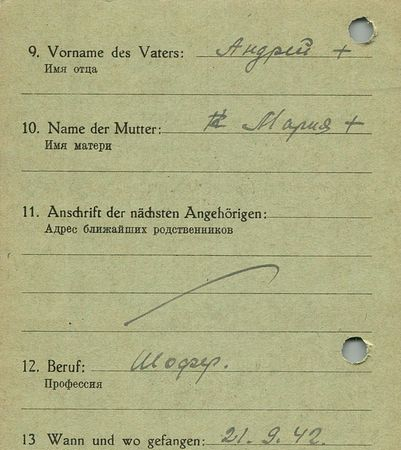 9. Vorname des Vaters: Андрей +
Имя отца
10. Name der Mutter: Мария +
Имя матери
11. Anschrift der nächsten Angehörigen:
Адрес ближайших родственников
12. Beruf: Шофер.
Профессия
13 Wann und wo gefangen: 21. 9. 42.